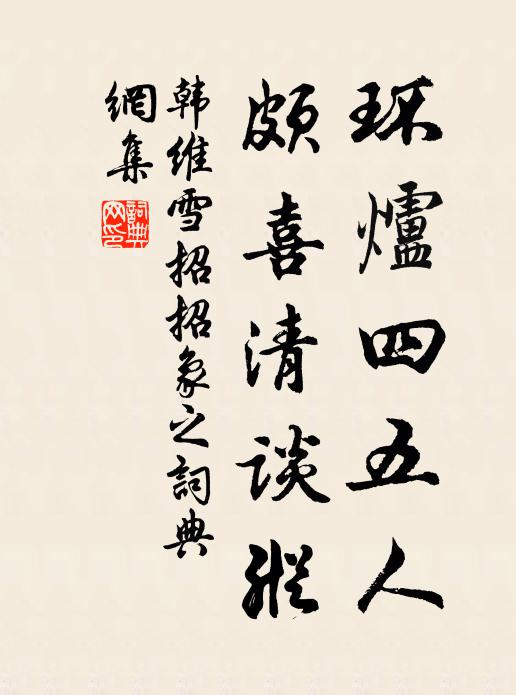 环爐四五人
頗喜清談縱
韩維雪招招象之詞典
網集
詞典
网印